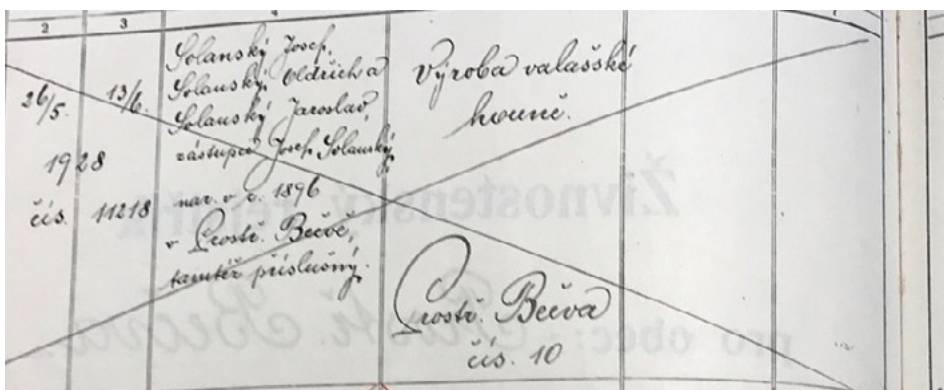 2
3
4
26/5. 13/6.
1928
čís. 11218
Solanský Josef,
Solanský Oldřich a
Solanský Jaroslav,
zástupce Josef Solanský,
nar. v r. 1896
v Prostř. Bečvě,
tamtéž příslušný.
Výroba valašské
houně.
Prostř. Bečva
čís. 10
Živnostenský rejstřík
pro obec: Prostř. Bečva